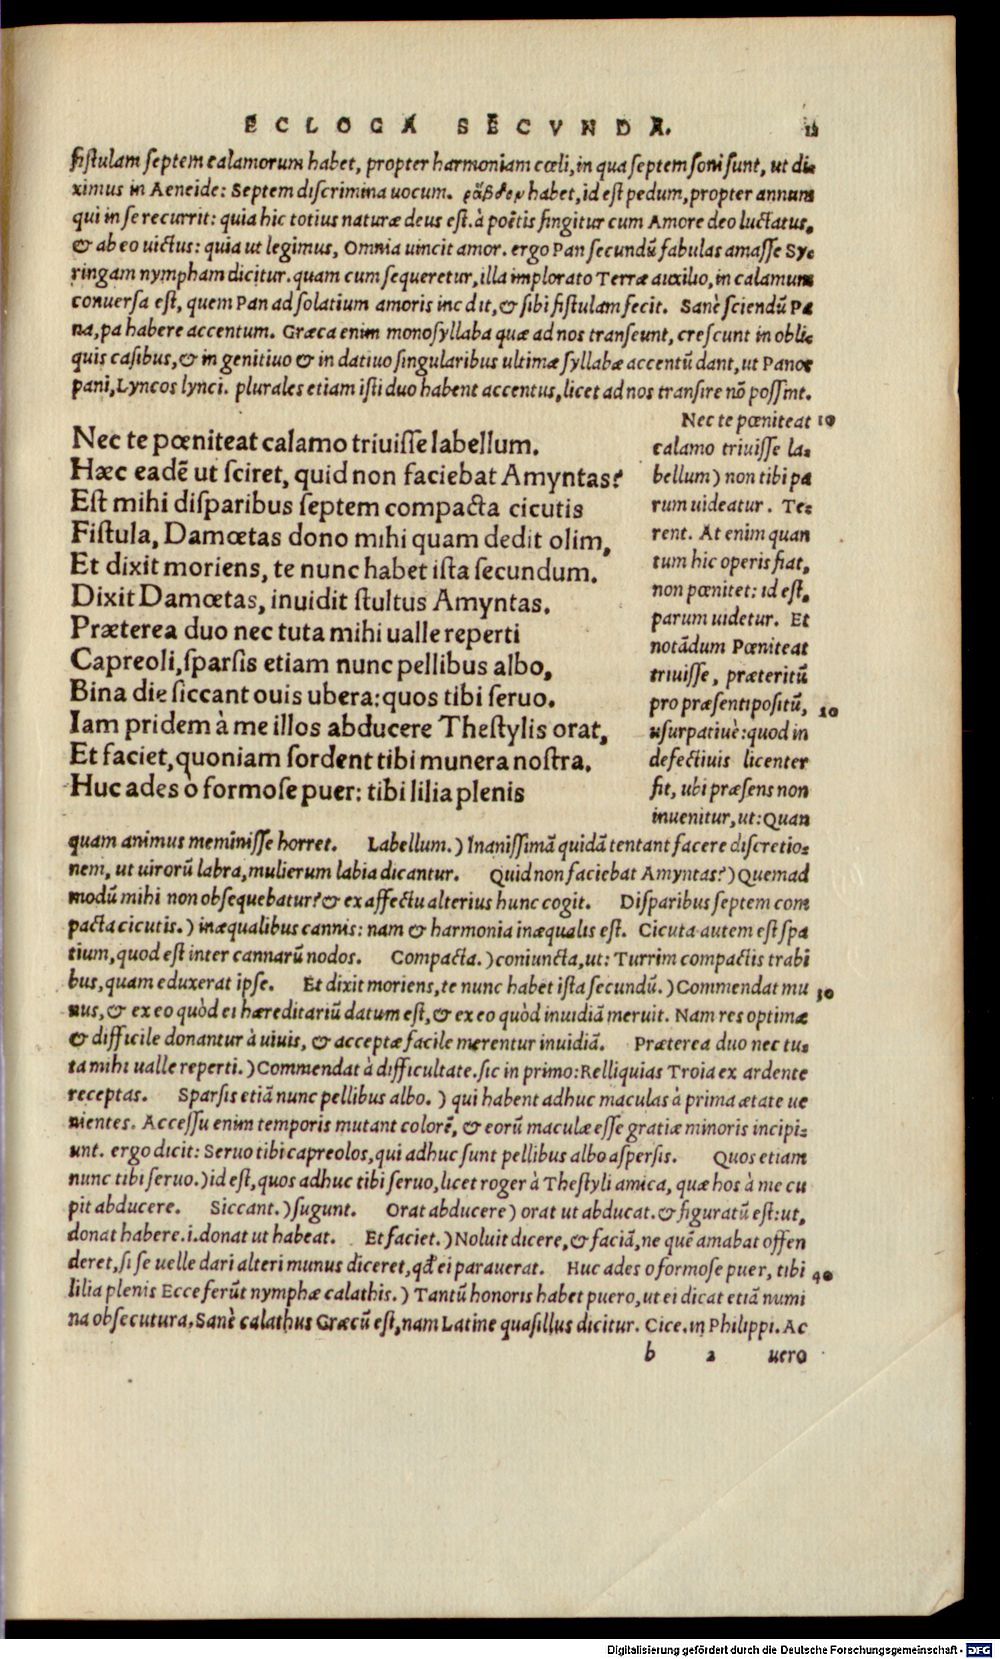 ECLOGA SECVNDA. 11
fistulam septem calamorum habet, propter harmoniam cœli, in qua septem soni sunt, ut di-
ximus in Aeneide: Septem discrimina uocum. ῥάβδον habet, id est pedum, propter annum
qui in se recurrit: quia hic totius naturæ deus est. à poëtis fingitur cum Amore deo luctatus,
& ab eo uictus: quia ut legimus, Omnia uincit amor. ergo Pan secundũ fabulas amasse Sy-
ringam nympham dicitur. quam cum sequeretur, illa implorato Terræ auxilio, in calamum
conuersa est, quem Pan ad solatium amoris incdit, & sibi fistulam fecit. Sanè sciendũ Pa
na, pa habere accentum. Græca enim monosyllaba quæ ad nos transeunt, crescunt in obli-
quis casibus, & in genitiuo & in datiuo singularibus ultimæ syllabæ accentũ dant, ut Panos
pani, Lyncos lynci. plurales etiam isti duo habent accentus, licet ad nos transire nõ possint.
Nec te pœniteat calamo triuisse labellum.
Hæc eadẽ ut sciret, quid non faciebat Amyntas?
Est mihi disparibus septem compacta cicutis
Fistula, Damœtas dono mihi quam dedit olim,
Et dixit moriens, te nunc habet ista secundum.
Dixit Damœtas, inuidit stultus Amyntas.
Præterea duo nec tuta mihi ualle reperti
Capreoli, sparsis etiam nunc pellibus albo,
Bina die siccant ouis ubera: quos tibi seruo.
Iam pridem à me illos abducere Thestylis orat,
Et faciet, quoniam sordent tibi munera nostra.
Huc ades ò formose puer: tibi lilia plenis
Nec te pœniteat 10
calamo triuisse la-
bellum) non tibi pa
rum uideatur. Te-
rent. At enim quan
tum hic operis fiat,
non pœnitet: id est,
parum uidetur. Et
notãdum Pœniteat
triuisse, præteritũ
pro præsenti positũ, 20
usurpatiuè: quod in
defectiuis licenter
fit, ubi præsens non
inuenitur, ut: Quan
quam animus meminisse horret. Labellum.) Inanissimã quidã tentant facere discretio-
nem, ut uirorũ labra, mulierum labia dicantur. Quid non faciebat Amyntas?) Quemad
modũ mihi non obsequebatur? & ex affectu alterius hunc cogit. Disparibus septem com
pacta cicutis.) inæqualibus cannis: nam & harmonia inæqualis est. Cicuta autem est spa
tium, quod est inter cannarũ nodos. Compacta.) coniuncta, ut: Turrim compactis trabi
bus, quam eduxerat ipse. Et dixit moriens, te nunc habet ista secundũ.) Commendat mu 30
nus, & ex eo quòd ei hæreditariũ datum est, & ex eo quòd inuidiã meruit. Nam res optimæ
& difficile donantur à uiuis, & acceptæ facile merentur inuidiã. Præterea duo nec tu-
ta mihi ualle reperti.) Commendat à difficultate. sic in primo: Relliquias Troia ex ardente
receptas. Sparsis etiã nunc pellibus albo.) qui habent adhuc maculas à prima ætate ue
nientes. Accessu enim temporis mutant colorẽ, & eorũ maculæ esse gratiæ minoris incipi-
unt. ergo dicit: Seruo tibi capreolos, qui adhuc sunt pellibus albo aspersis. Quos etiam
nunc tibi seruo.) id est, quos adhuc tibi seruo, licet roger à Thestyli amica, quæ hos à me cu
pit abducere. Siccant.) sugunt. Orat abducere) orat ut abducat. & figuratũ est: ut,
donat habere. i. donat ut habeat. Et faciet.) Noluit dicere, & faciã, ne quẽ amabat offen
deret, si se uelle dari alteri munus diceret, qđ ei parauerat. Huc ades o formose puer, tibi 40
lilia plenis Ecce ferũt nymphæ calathis.) Tantũ honoris habet puero, ut ei dicat etiã numi
na obsecutura. Sanè calathus Græcũ est, nam Latine quasillus dicitur. Cice. in Philippi. Ac
b 2 uero
Digitalisierung gefördert durch die Deutsche Forschungsgemeinschaft - DFG